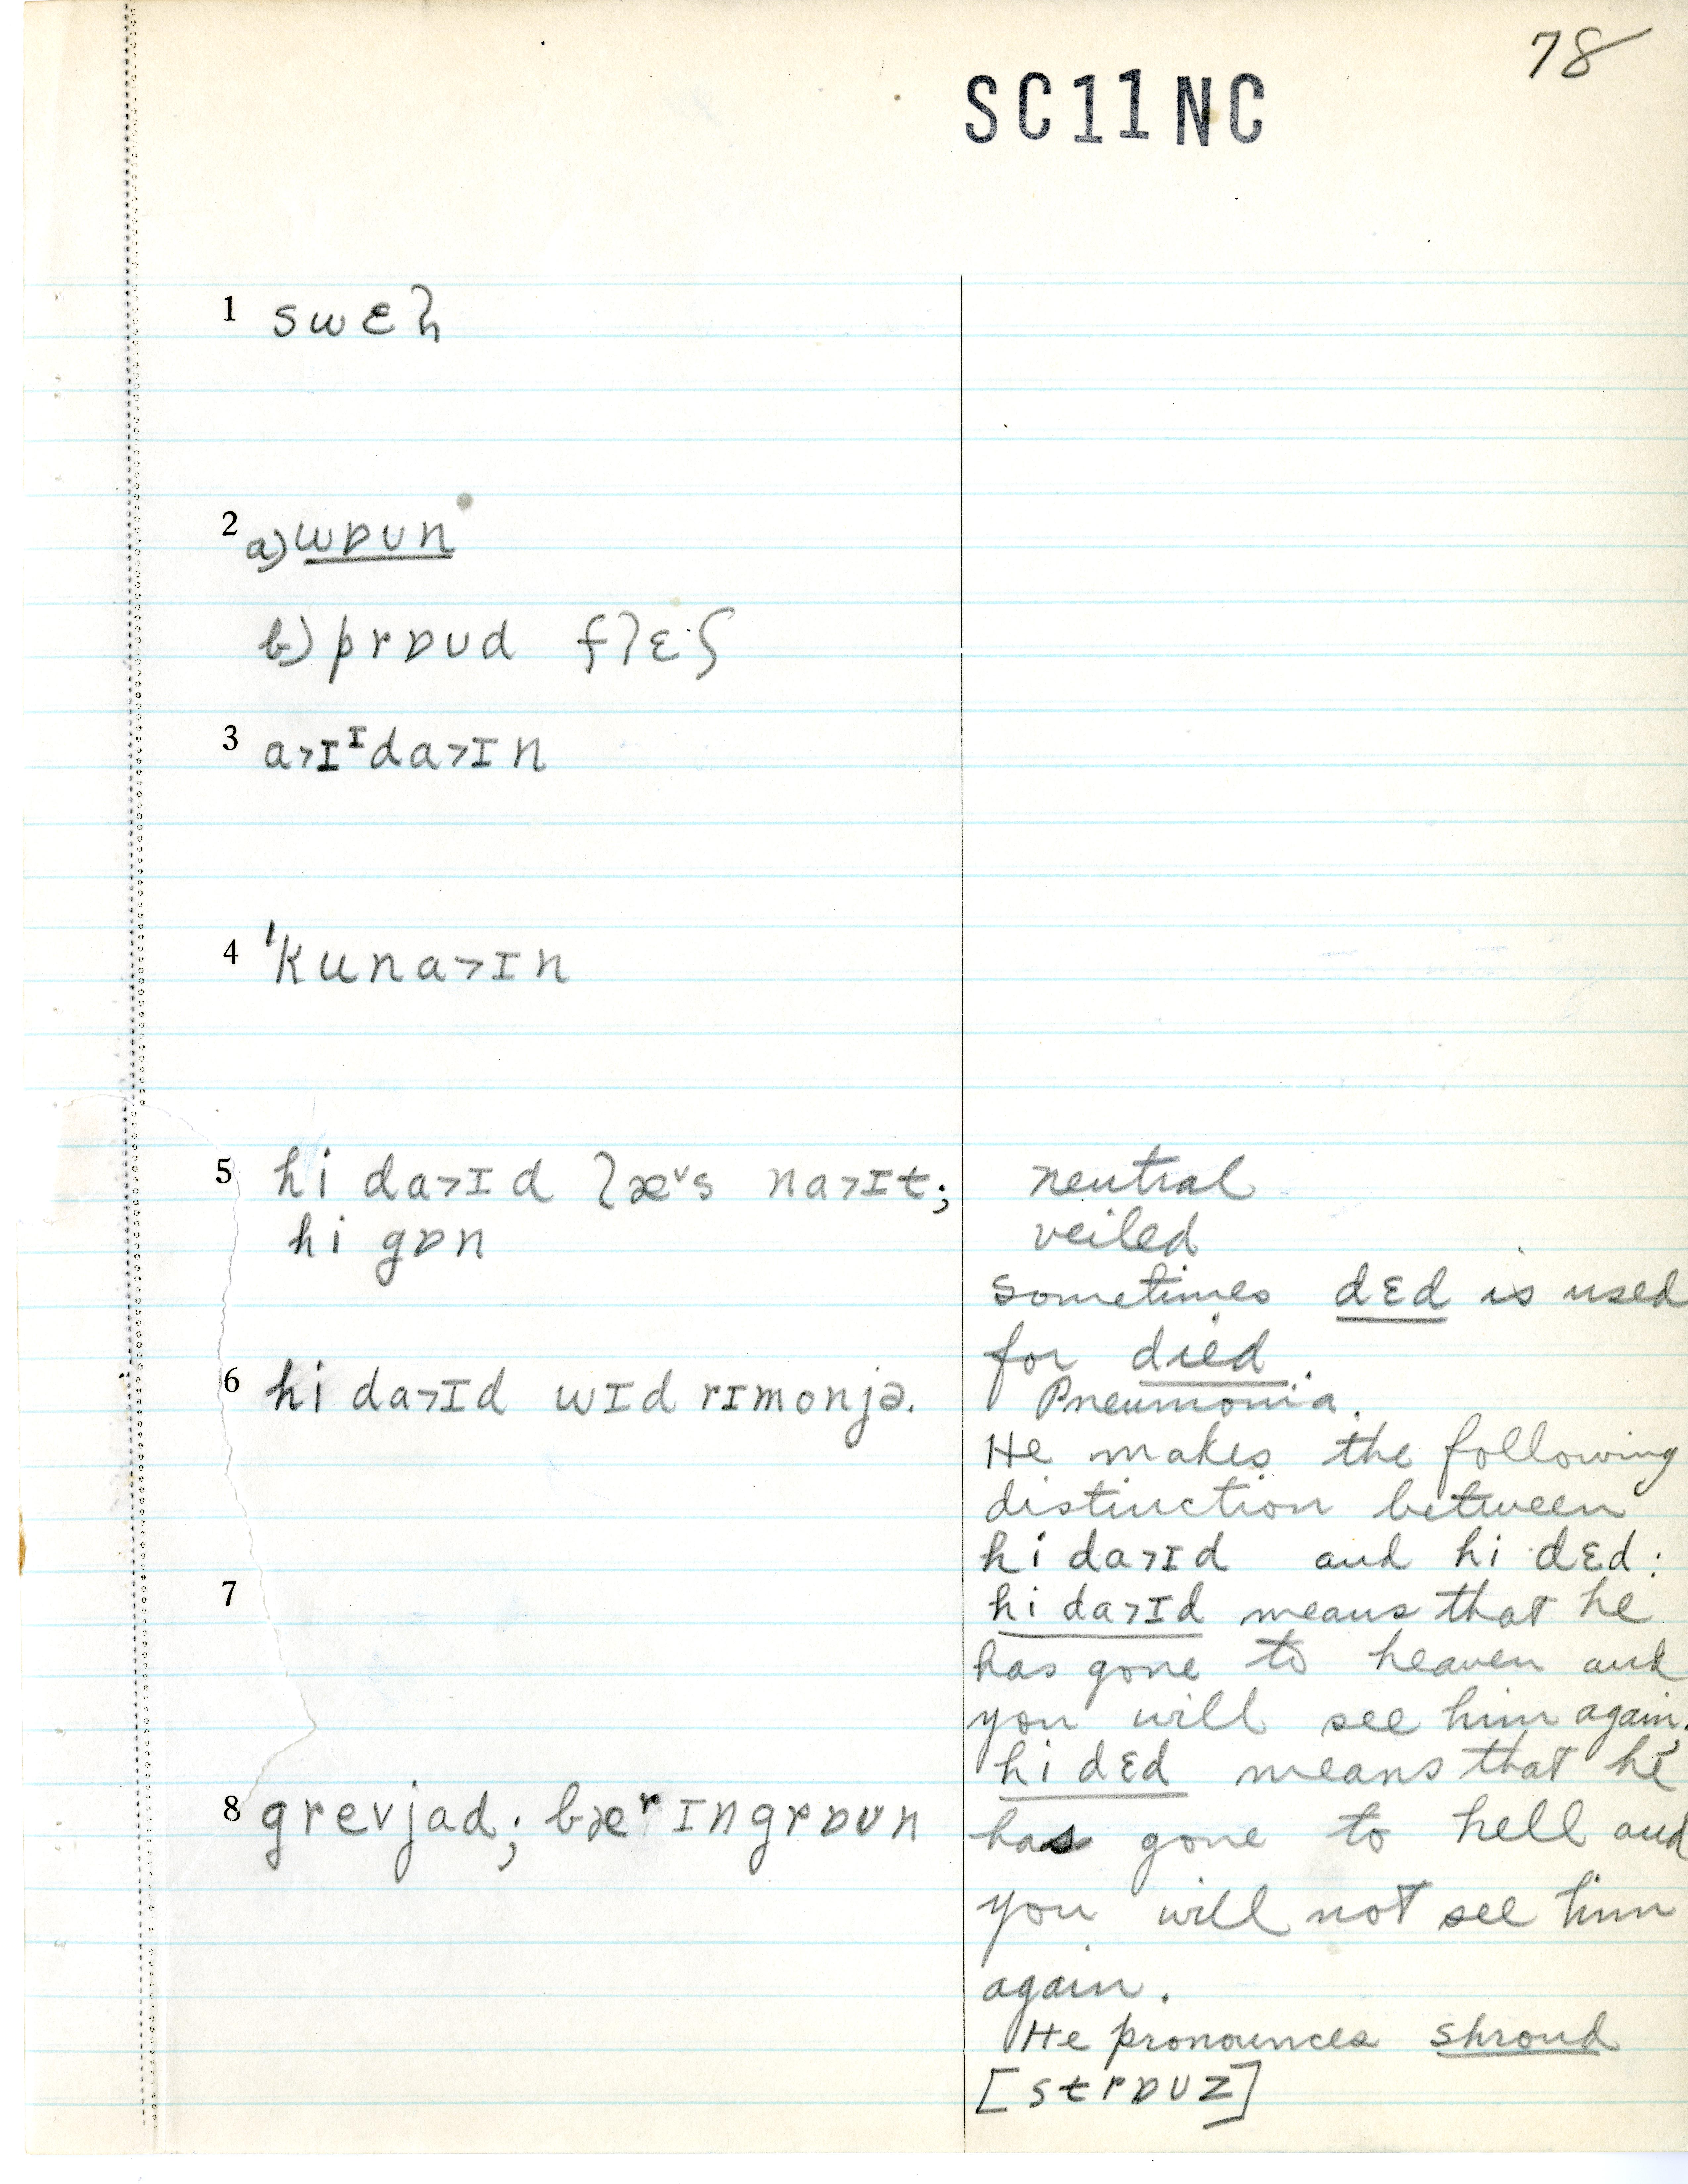 78
SC11NC
1 swɛl
2 a) wɒʊn
b) prɒʊd flɛʃ
3 a>ɪᶦda>ɪn
4 ˈkuna>ɪn
5 hi da>ɪd læ˅s na>ɪt;
hi gɒn
6 hi da>ɪd wɪd rɪmonjə.
7
8 grevjad; bæʳɪngrɒʊn
neutral
veiled
sometimes dɛd is used
for died.
Pneumonia.
He makes the following
distinction between
hi da>ɪd and hi dɛd:
hi da>ɪd means that he
has gone to heaven and
you will see him again.
hi dɛd means that he
has gone to hell and
you will not see him
again.
He pronounces shroud
[strɒʊz]